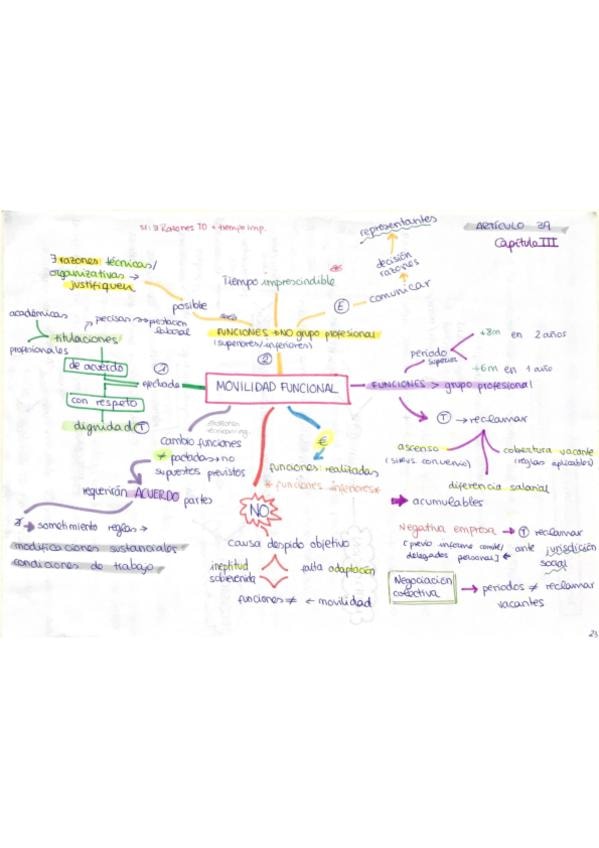 ARTÍCULO 39
Capítulo III
representantes
decisión
razones
comunicar
E
si: ∃ Razones TO + tiempo imp.
∃ razones técnicas/
organizativas →
justifiquen
posible
Tiempo imprescindible
*
FUNCIONES ≠ NO grupo profesional
(superiores/inferiores)
2
MOVILIDAD FUNCIONAL
académicas
profesionales
titulaciones
precisas → prestación
laboral
de acuerdo
con respeto
dignidad T
1
efectuada
FUNCIONES > grupo profesional
periodo
superior
+8m en 2 años
+6m en 1 año
T → reclamar
ascenso
(si NO vs. convenio)
cobertura vacante
(reglas aplicables)
diferencia salarial
→ acumulables
Negativa empresa → T reclamar
[previo informe comité/
delegados personal] ← ante jurisdicción
social
Negociación
colectiva
→ periodos ≠ reclamar
vacantes
cambio funciones
≠ pactadas → no
supuestos previstos
requerirán ACUERDO partes
→ sometimiento reglas →
modificaciones sustanciales
condiciones de trabajo
€
funciones realizadas
* funciones inferiores *
NO
causa despido objetivo
ineptitud
sobrevenida
falta adaptación
funciones ≠ ← movilidad
23